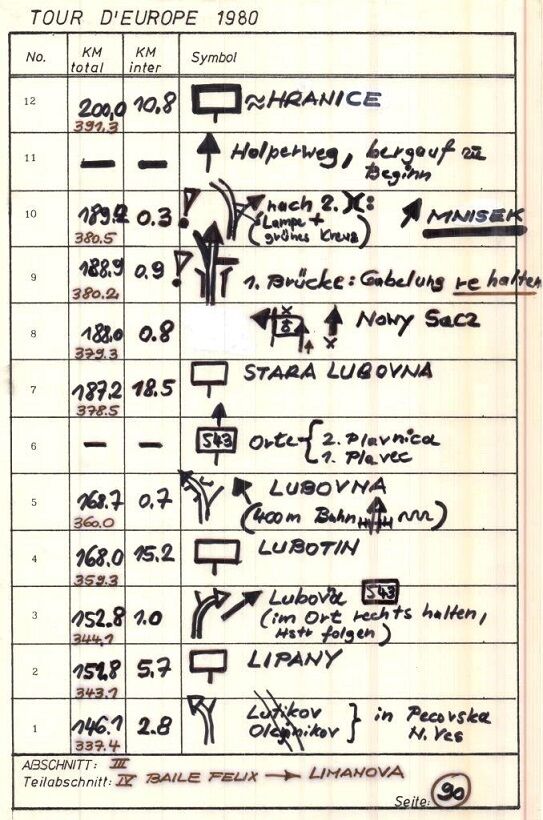 TOUR D'EUROPE 1980
No. KM total KM inter Symbol
12 200,0 10.8 ≈HRANICE
391.3
11 — — Holperweg, bergauf
Beginn
10 189.2 0.3 ! nach 2. : MNISEK
380.5 (Lampe +
grünes Kreuz)
9 188.9 0.9 ! 1. Brücke: Gabelung re halten
380.2
8 188.0 0.8 NOWY SACZ
379.3
7 187.2 18.5 STARA LUBOVNA
378.5
6 — — 543 Orte { 2. Plavnica
1. Plavec
5 168.7 0.7 LUBOVNA
360.0 (400m Bahn)
4 168.0 15.2 LUBOTIN
359.3
3 152.8 1.0 543
344.1 (im Ort rechts halten,
Hstr folgen)
2 151.8 5.7 LIPANY
343.1
1 146.1 2.8 Lutikov } in Pecovska
337.4 Olejnikov N. Ves
ABSCHNITT: III
Teilabschnitt: IV BAILE FELIX → LIMANOVA
Seite: 90